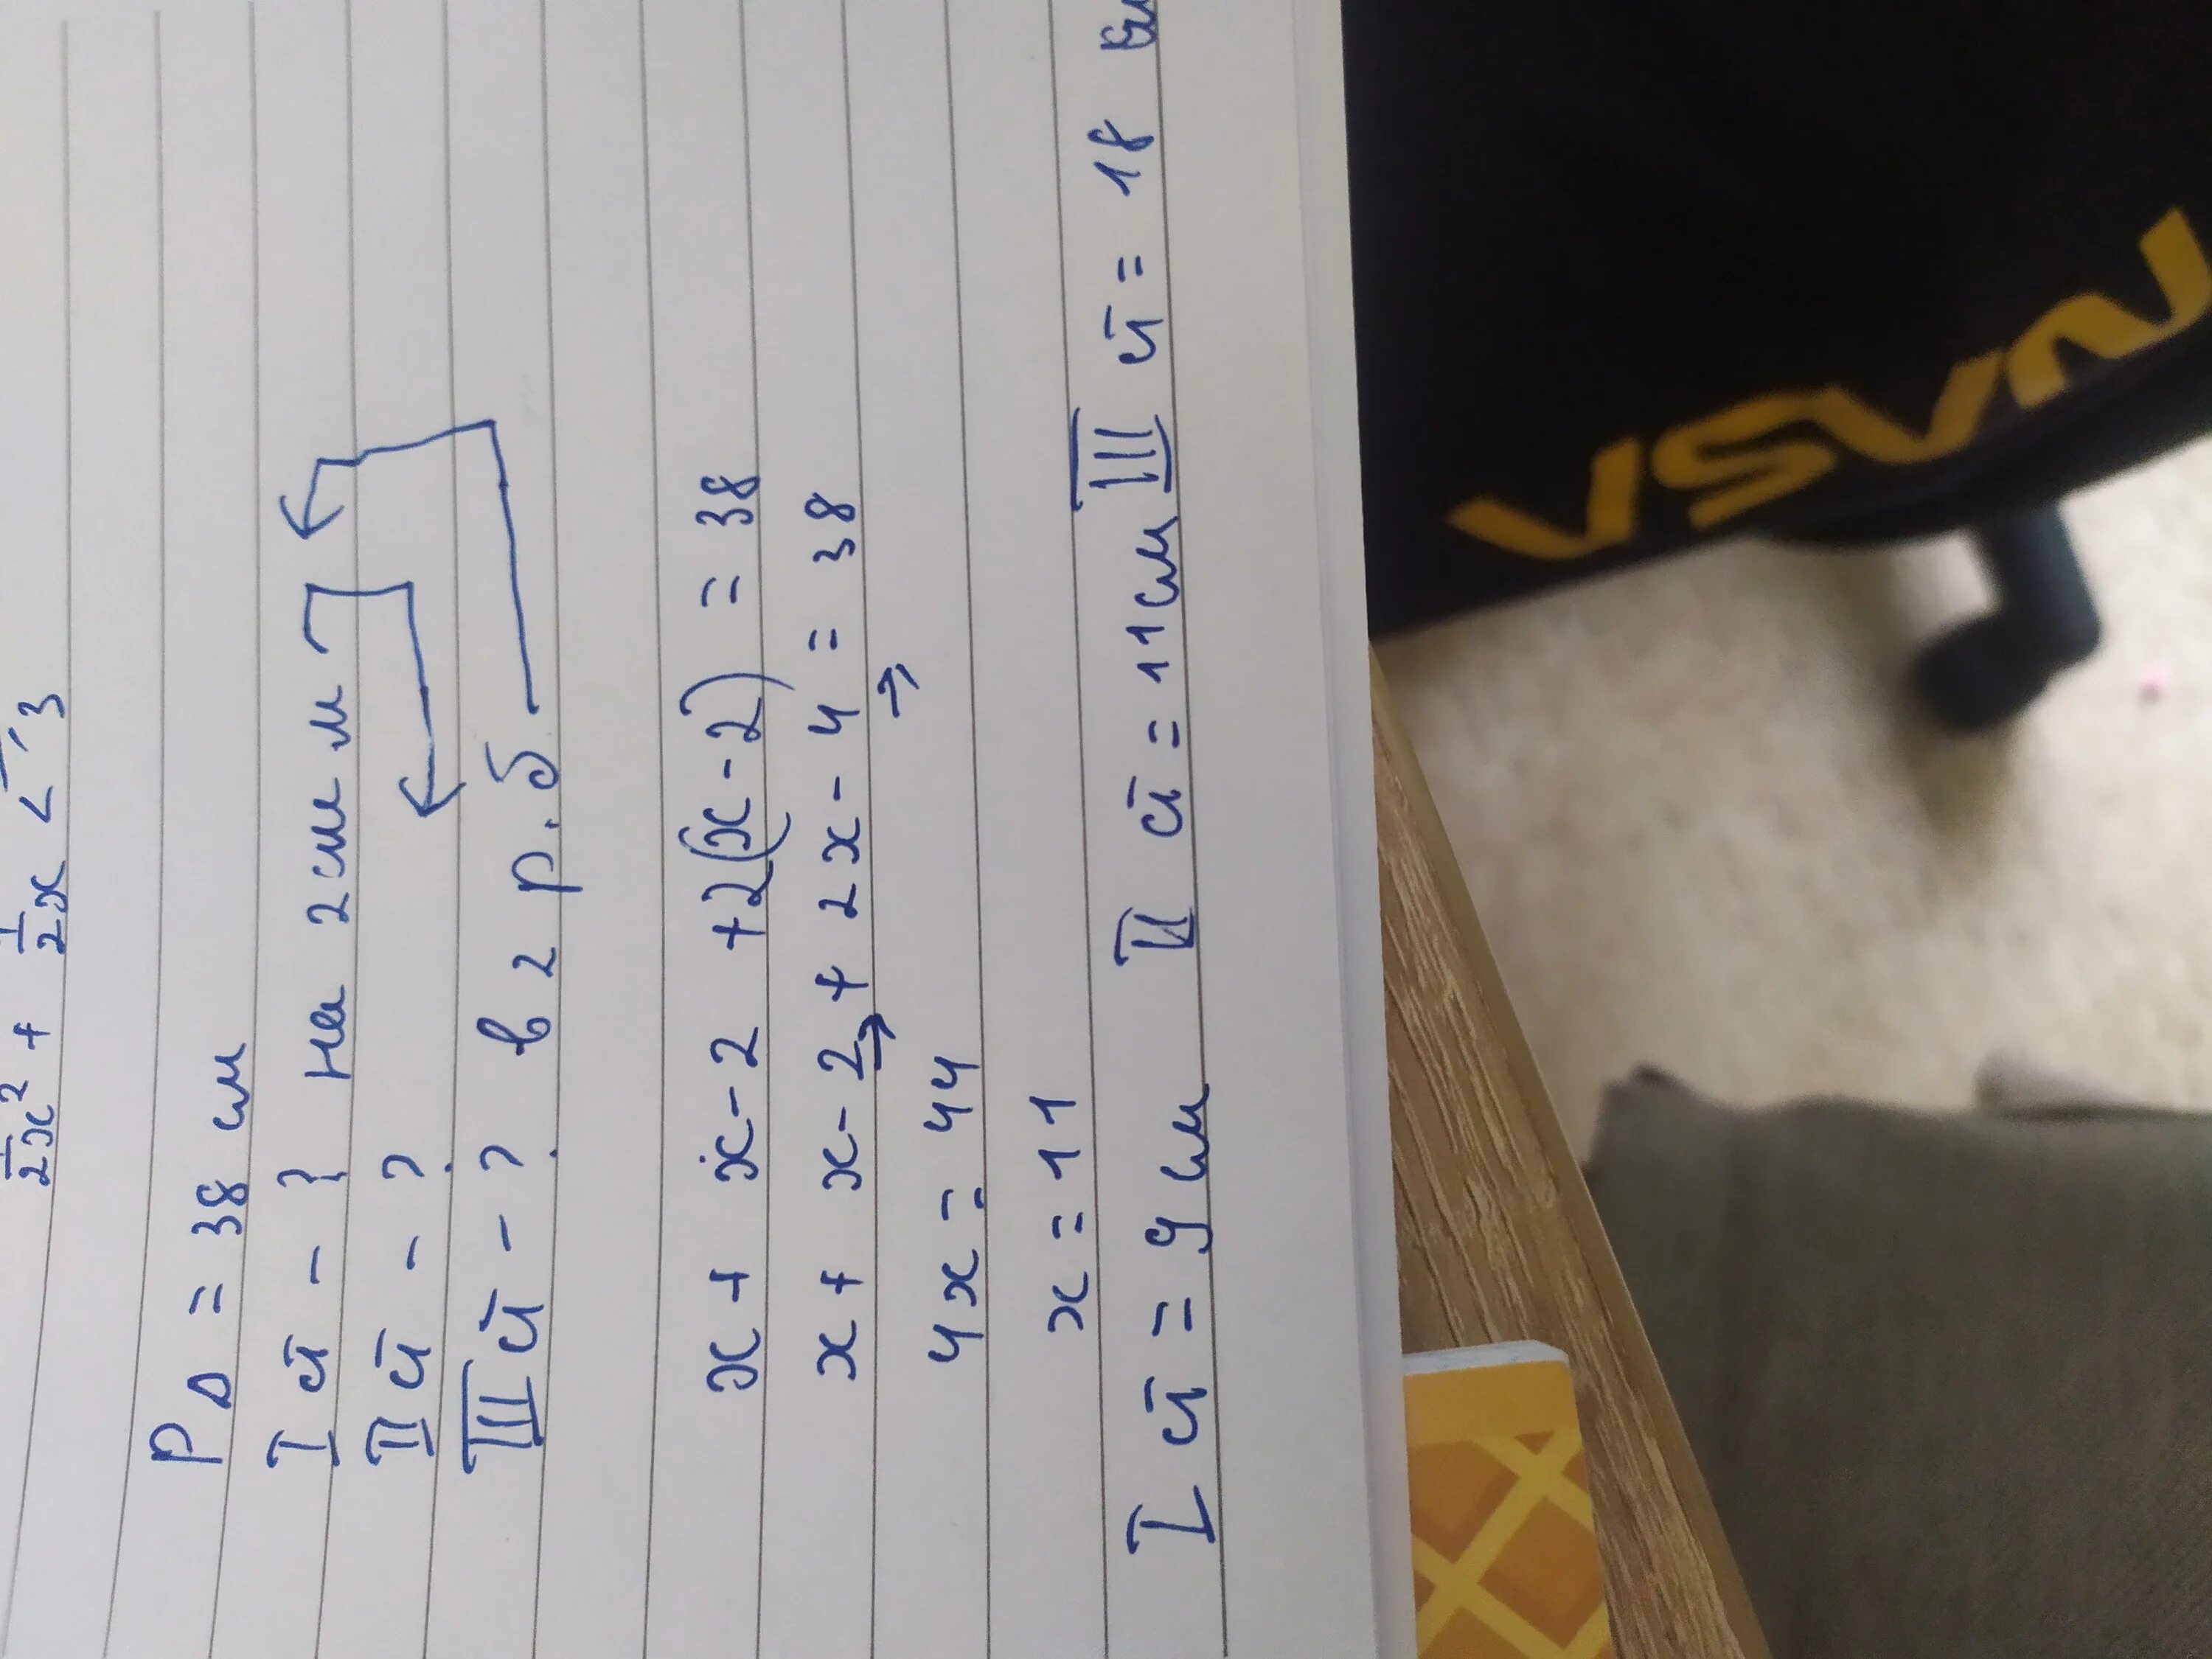 1/2x² + 1/2x < 3
P△ = 38 см
I ст - ? на 2см м
II ст - ?
III ст - ? в 2 р. б
x + x - 2 + 2(x - 2) = 38
x + x - 2 + 2x - 4 = 38
4x = 44
x = 11
I ст = 9 см II ст = 11см III ст = 18 см
NASA